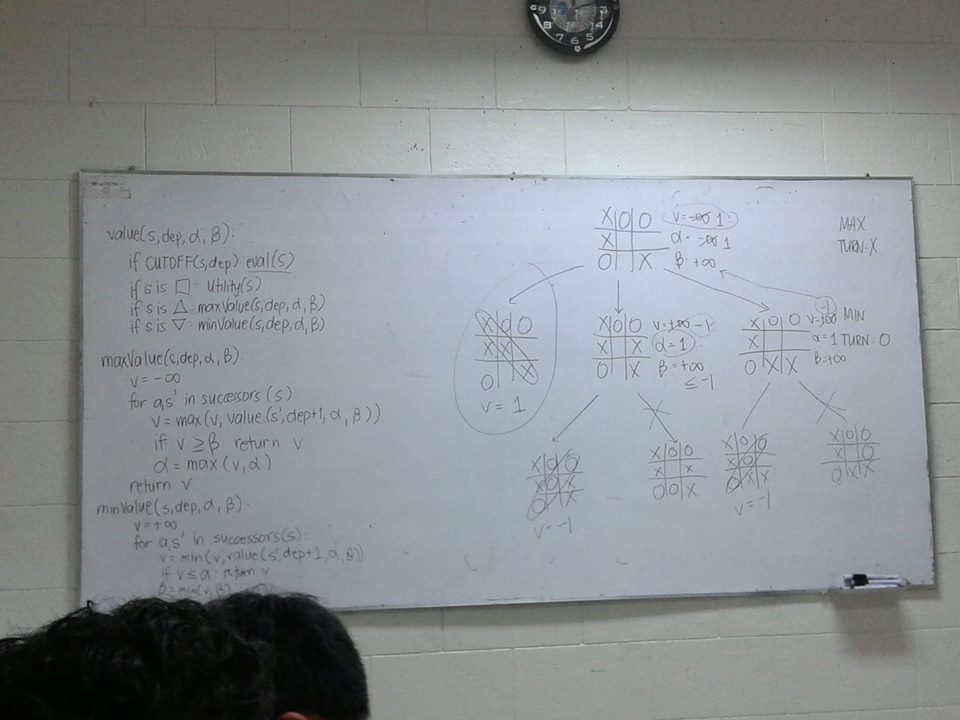 value(s, dep, α, β):
if CUTOFF(s, dep): eval(s)
if s is □: Utility(s)
if s is △: maxValue(s, dep, α, β)
if s is ▽: minValue(s, dep, α, β)
maxValue(s, dep, α, β):
v = -∞
for a,s' in successors(s)
v = max(v, value(s', dep+1, α, β))
if v ≥ β return v
α = max(v, α)
return v
minValue(s, dep, α, β):
v = +∞
for a,s' in successors(s):
v = min(v, value(s', dep+1, α, β))
if v ≤ α return v
β = min(v, β)
X|O|O v = -∞ 1
X| | α = -∞ 1
O| |X β = +∞
MAX
TURN: X
X|O|O
X|X|
O| |X
v = 1
X|O|O v = +∞ -1
X| |X α = 1
O| |X β = +∞
≤ -1
-1
X|O|O v = +∞ MIN
X| | α = 1 TURN: O
O|X|X β = +∞
X|O|O
X|O|X
O| |X
v = -1
X|O|O
X| |X
O|O|X
X|O|O
X|O|
O|X|X
v = -1
X|O|O
X| |O
O|X|X
9 3
8 4
7 6 5